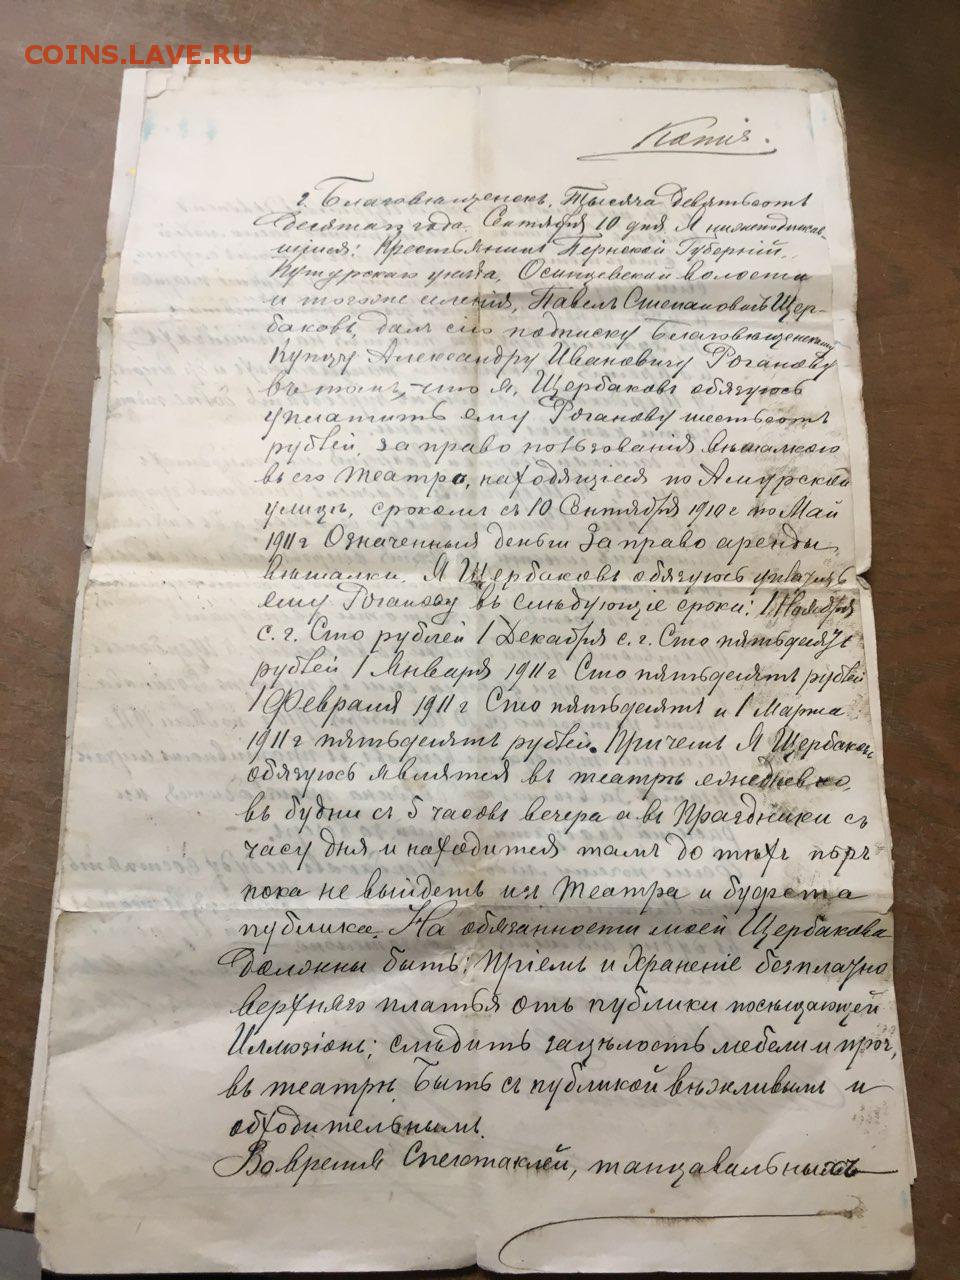 COINS.LAVE.RU
Копія.
г. Благовѣщенскъ, Тысяча Девятьсотъ
Десятаго года. Сентября 10 дня. Я нижеподписав-
шійся: Крестьянинъ Пермской Губерніи,
Кунгурскаго уѣзда, Осинцевской волости
и тогоже селенія, Павелъ Степановичъ Щер-
баковъ, далъ сію подписку Благовѣщенскому
Купцу Александру Ивановичу Роганову
въ томъ, что я, Щербаковъ обязуюсь
уплатить ему Роганову шестьсотъ
рублей, за право пользованія вѣшалкою
въ его театрѣ, находящійся по Амурской
улицѣ, срокомъ съ 10 Сентября 1910 г по Май
1911 г Означенныя деньги За право аренды
вѣшалки. Я Щербаковъ обязуюсь уплатить
ему Роганову въ слѣдующіе сроки: 1 Ноября
с. г. Сто рублей 1 Декабря с. г. Сто пятьдесятъ
рублей 1 Января 1911 г Сто пятьдесятъ рублей
1 Февраля 1911 г Сто пятьдесятъ и 1 Марта
1911 г пятьдесятъ рублей. Причемъ Я Щербаковъ
обязуюсь являтся въ театръ ежедневно,
въ будни съ 5 часовъ вечера а въ Праздники съ
часу дня и находится тамъ до тѣхъ поръ
пока не выйдетъ изъ театра и буфета
публика. На обязанности моей Щербакова
должны быть: пріемъ и храненіе безплатно
верхняго платья отъ публики посѣщающей
Иллюзіонъ; слѣдить зацѣлость мебели и проч,
въ театрѣ. Быть съ публикой вѣжливымъ и
обходительнымъ.
Во время Спектаклей, танцавальныхъ